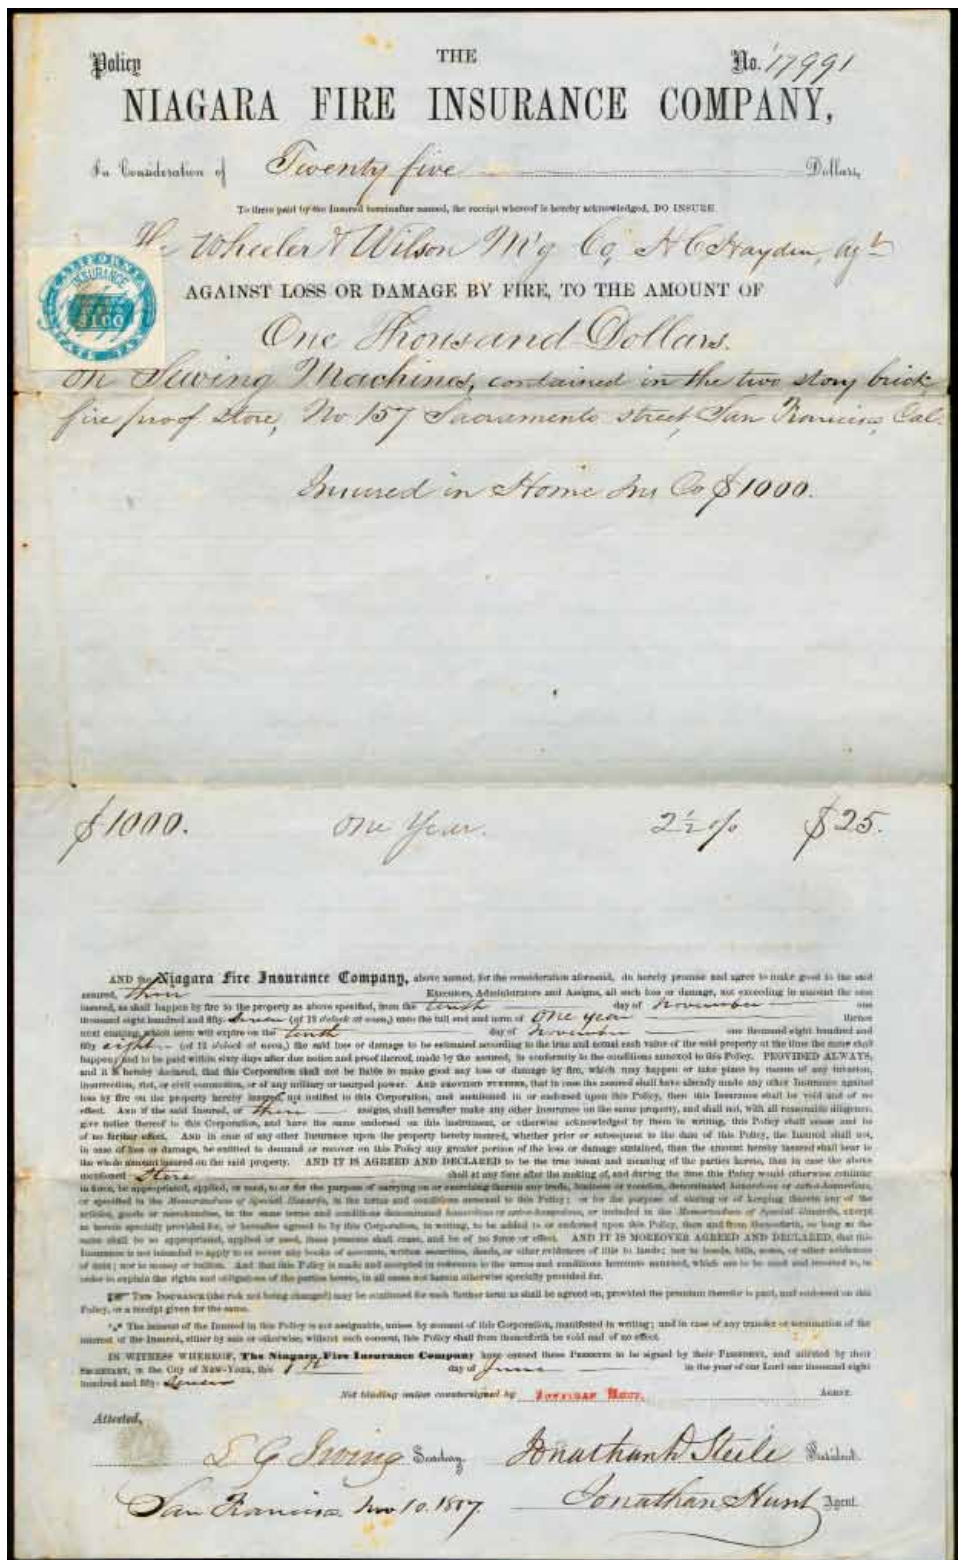 Policy THE No. 17991
NIAGARA FIRE INSURANCE COMPANY,
In Consideration of Twenty five Dollars,
To them paid by the Insured hereinafter named, the receipt whereof is hereby acknowledged, DO INSURE
The Wheeler & Wilson M'g Co, H C Hayden, agt
CALIFORNIA
INSURANCE
$1.00
STATE TAX
AGAINST LOSS OR DAMAGE BY FIRE, TO THE AMOUNT OF
One Thousand Dollars.
On Sewing Machines, contained in the two story brick
fire proof store, No 157 Sacramento street, San Francisco, Cal.
Insured in Home Ins Co $1000.
$1000. One Year. 2½ % $25.
AND the Niagara Fire Insurance Company, above named, for the consideration aforesaid, do hereby promise and agree to make good to the said
assured, their Executors, Administrators and Assigns, all such loss or damage, not exceeding in amount the sum
insured, as shall happen by fire to the property as above specified, from the tenth day of November one
thousand eight hundred and fifty- seven (at 12 o'clock at noon,) unto the full end and term of one year thence
next ensuing, which term will expire on the tenth day of November one thousand eight hundred and
fifty eight (at 12 o'clock at noon,) the said loss or damage to be estimated according to the true and actual cash value of the said property at the time the same shall
happen; and to be paid within sixty days after due notice and proof thereof, made by the assured, in conformity to the conditions annexed to this Policy. PROVIDED ALWAYS,
and it is hereby declared, that this Corporation shall not be liable to make good any loss or damage by fire, which may happen or take place by means of any invasion,
insurrection, riot, or civil commotion, or of any military or usurped power. AND PROVIDED FURTHER, that in case the assured shall have already made any other Insurance against
loss by fire on the property hereby insured, not notified to this Corporation, and mentioned in or endorsed upon this Policy, then this Insurance shall be void and of no
effect. AND if the said Insured, or their assigns, shall hereafter make any other Insurance on the same property, and shall not, with all reasonable diligence,
give notice thereof to this Corporation, and have the same endorsed on this instrument, or otherwise acknowledged by them in writing, this Policy shall cease and be
of no further effect. AND in case of any other Insurance upon the property hereby insured, whether prior or subsequent to the date of this Policy, the Insured shall not,
in case of loss or damage, be entitled to demand or recover on this Policy any greater portion of the loss or damage sustained, than the amount hereby insured shall bear to
the whole amount insured on the said property. AND IT IS AGREED AND DECLARED to be the true intent and meaning of the parties hereto, that in case the above
mentioned Store shall at any time after the making of, and during the time this Policy would otherwise continue
in force, be appropriated, applied, or used, to or for the purpose of carrying on or exercising therein any trade, business or vocation, denominated hazardous or extra-hazardous,
or specified in the Memorandum of Special Hazards, in the terms and conditions annexed to this Policy; or for the purpose of storing or of keeping therein any of the
articles, goods or merchandise, in the same terms and conditions denominated hazardous or extra-hazardous, or included in the Memorandum of Special Hazards, except
as herein specially provided for, or hereafter agreed to by this Corporation, in writing, to be added to or endorsed upon this Policy, then and from thenceforth, so long as the
same shall be so appropriated, applied or used, these presents shall cease, and be of no force or effect. AND IT IS MOREOVER AGREED AND DECLARED, that this
Insurance is not intended to apply to or cover any books of accounts, written securities, deeds, or other evidences of title to lands; nor to bonds, bills, notes, or other evidences
of debt; nor to money or bullion. And that this Policy is made and accepted in reference to the terms and conditions hereunto annexed, which are to be used and resorted to, in
order to explain the rights and obligations of the parties hereto, in all cases not herein otherwise specially provided for.
THIS INSURANCE (the risk not being changed) may be continued for such further term as shall be agreed on, provided the premium therefor is paid, and endorsed on this
Policy, or a receipt given for the same.
The interest of the Insured in this Policy is not assignable, unless by consent of this Corporation, manifested in writing; and in case of any transfer or termination of the
interest of the Insured, either by sale or otherwise, without such consent, this Policy shall from thenceforth be void and of no effect.
IN WITNESS WHEREOF, The Niagara Fire Insurance Company have caused these PRESENTS to be signed by their PRESIDENT, and attested by their
SECRETARY, in the City of NEW-YORK, this 9th day of June in the year of our Lord one thousand eight
hundred and fifty- seven
Not binding unless countersigned by JONATHAN HUNT, AGENT.
Attested,
Irving Secretary. Jonathan D Steele President.
San Francisco Nov 10. 1857. Jonathan Hunt Agent.